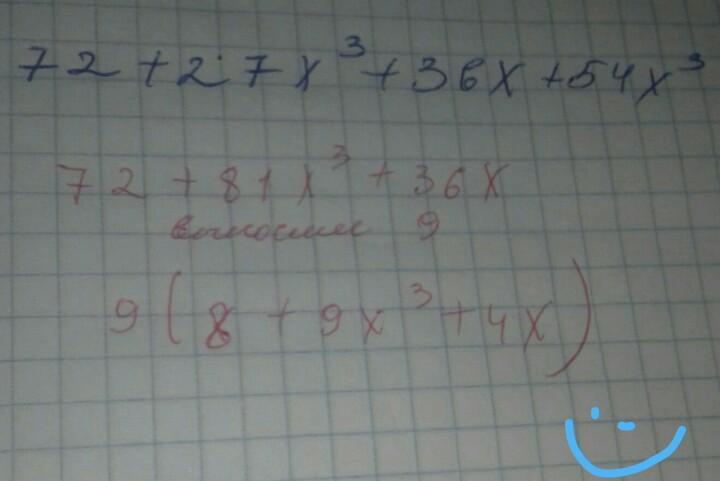 72 + 27x³ + 36x + 54x³
72 + 81x³ + 36x
выносим 9
9(8 + 9x³ + 4x)